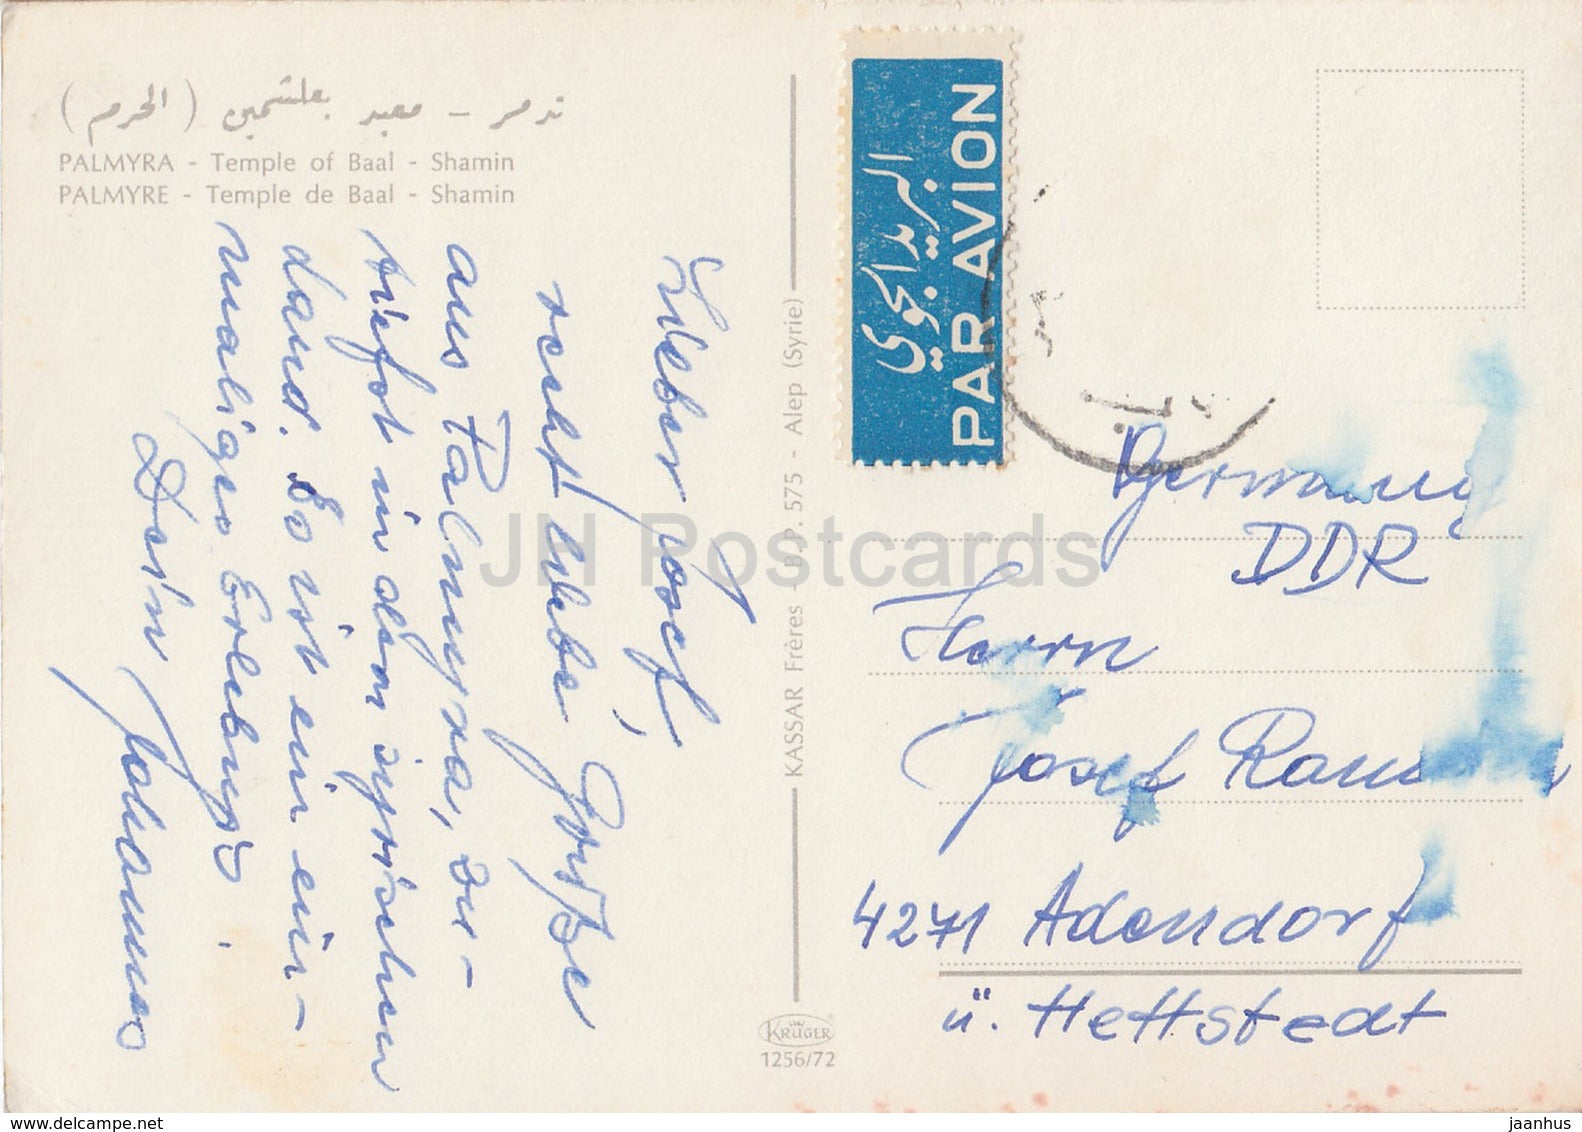 تدمر – معبد بعلشمين ( الحرم )
PALMYRA - Temple of Baal - Shamin
PALMYRE - Temple de Baal - Shamin
Lieber Josef,
recht liebe Grüße
aus Palmyra, zu-
tiefst in dem syrischen
land. Es ist ein ein-
maliges Erlebnis.
Dein Johannes
KASSAR Frères - B.P. 575 - Alep (Syrie)
KRÜGER
1256/72
البريد الجوي
PAR AVION
Germany
DDR
Herrn
Josef
4271 Adendorf
ü. Hettstedt
JH Postcards
www.delcampe.net
jaanhus